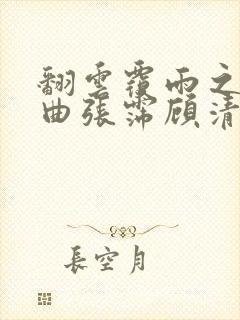 翻雲覆雨之
曲張霈顧清
長空月